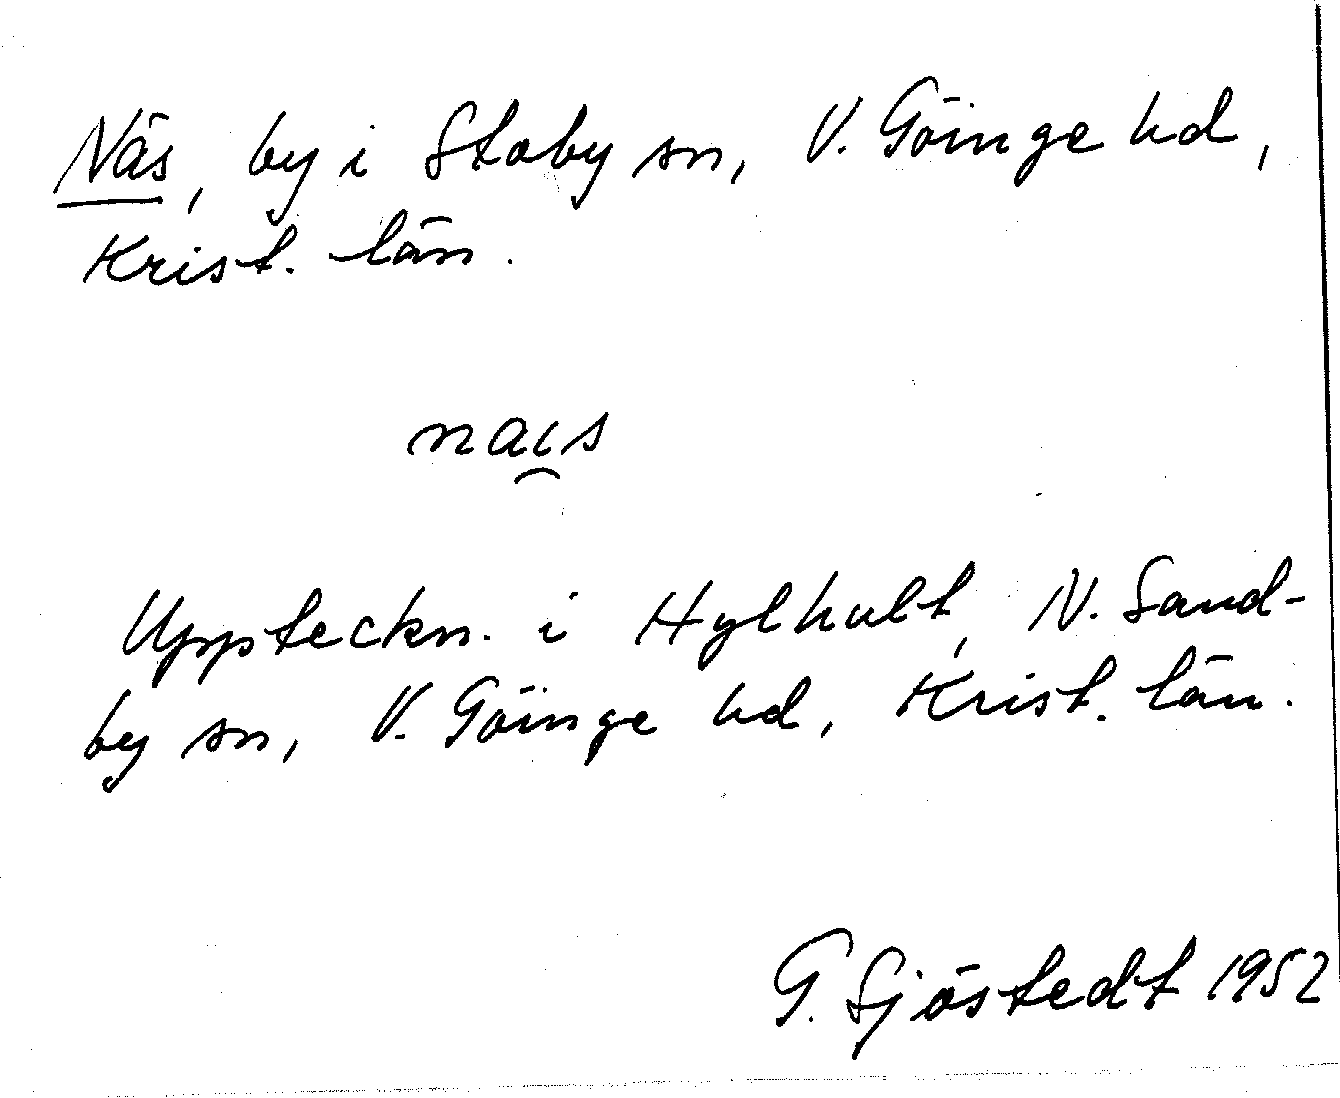 Näs, by i Stoby sn, V. Göinge hd,
Krist. län.
naı̯s
Uppteckn. i Hylhult, N. Sand-
by sn, V. Göinge hd, Krist. län.
G. Sjöstedt 1952